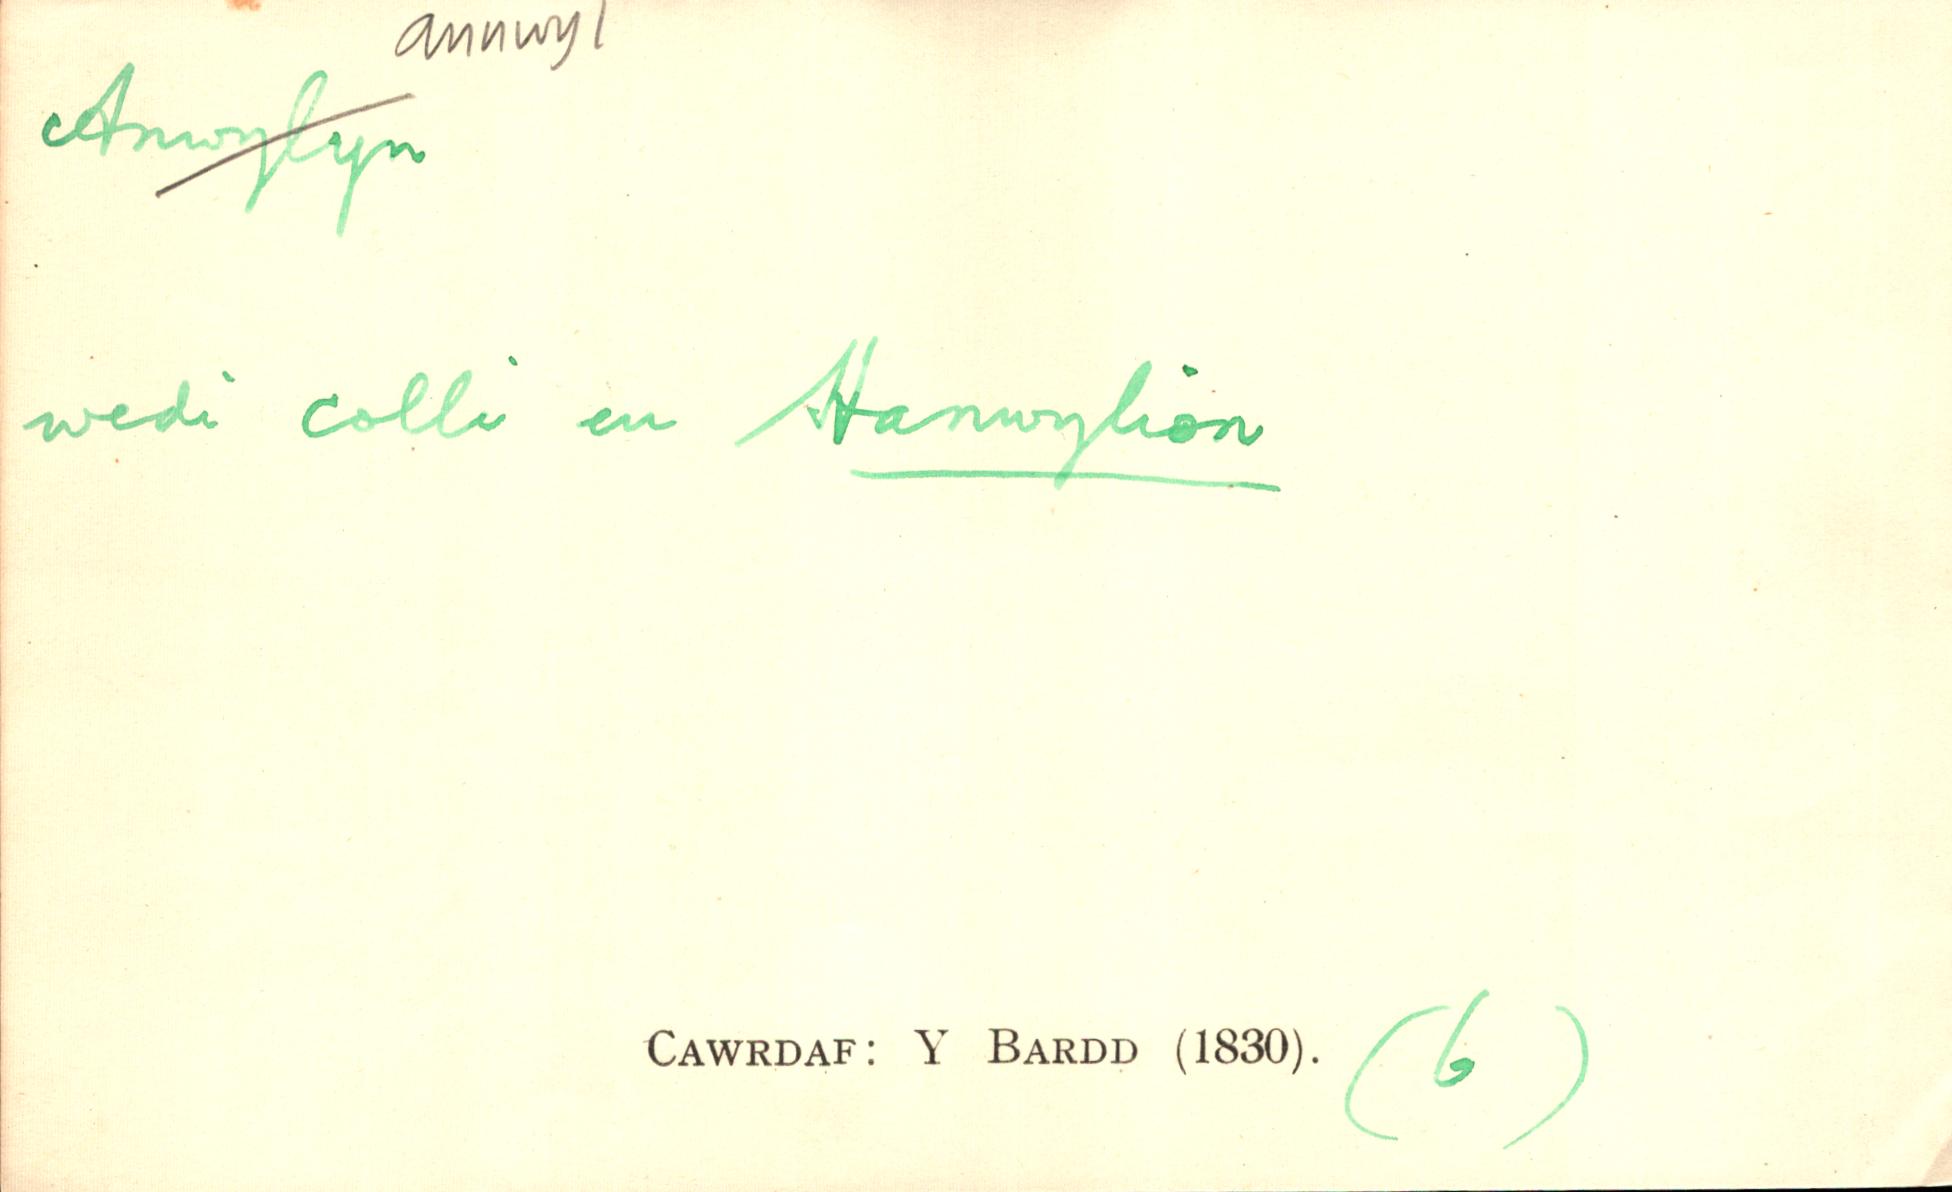 annwyl
Anwylyn
wedi colli eu Hanwylion
CAWRDAF: Y BARDD (1830). (6)